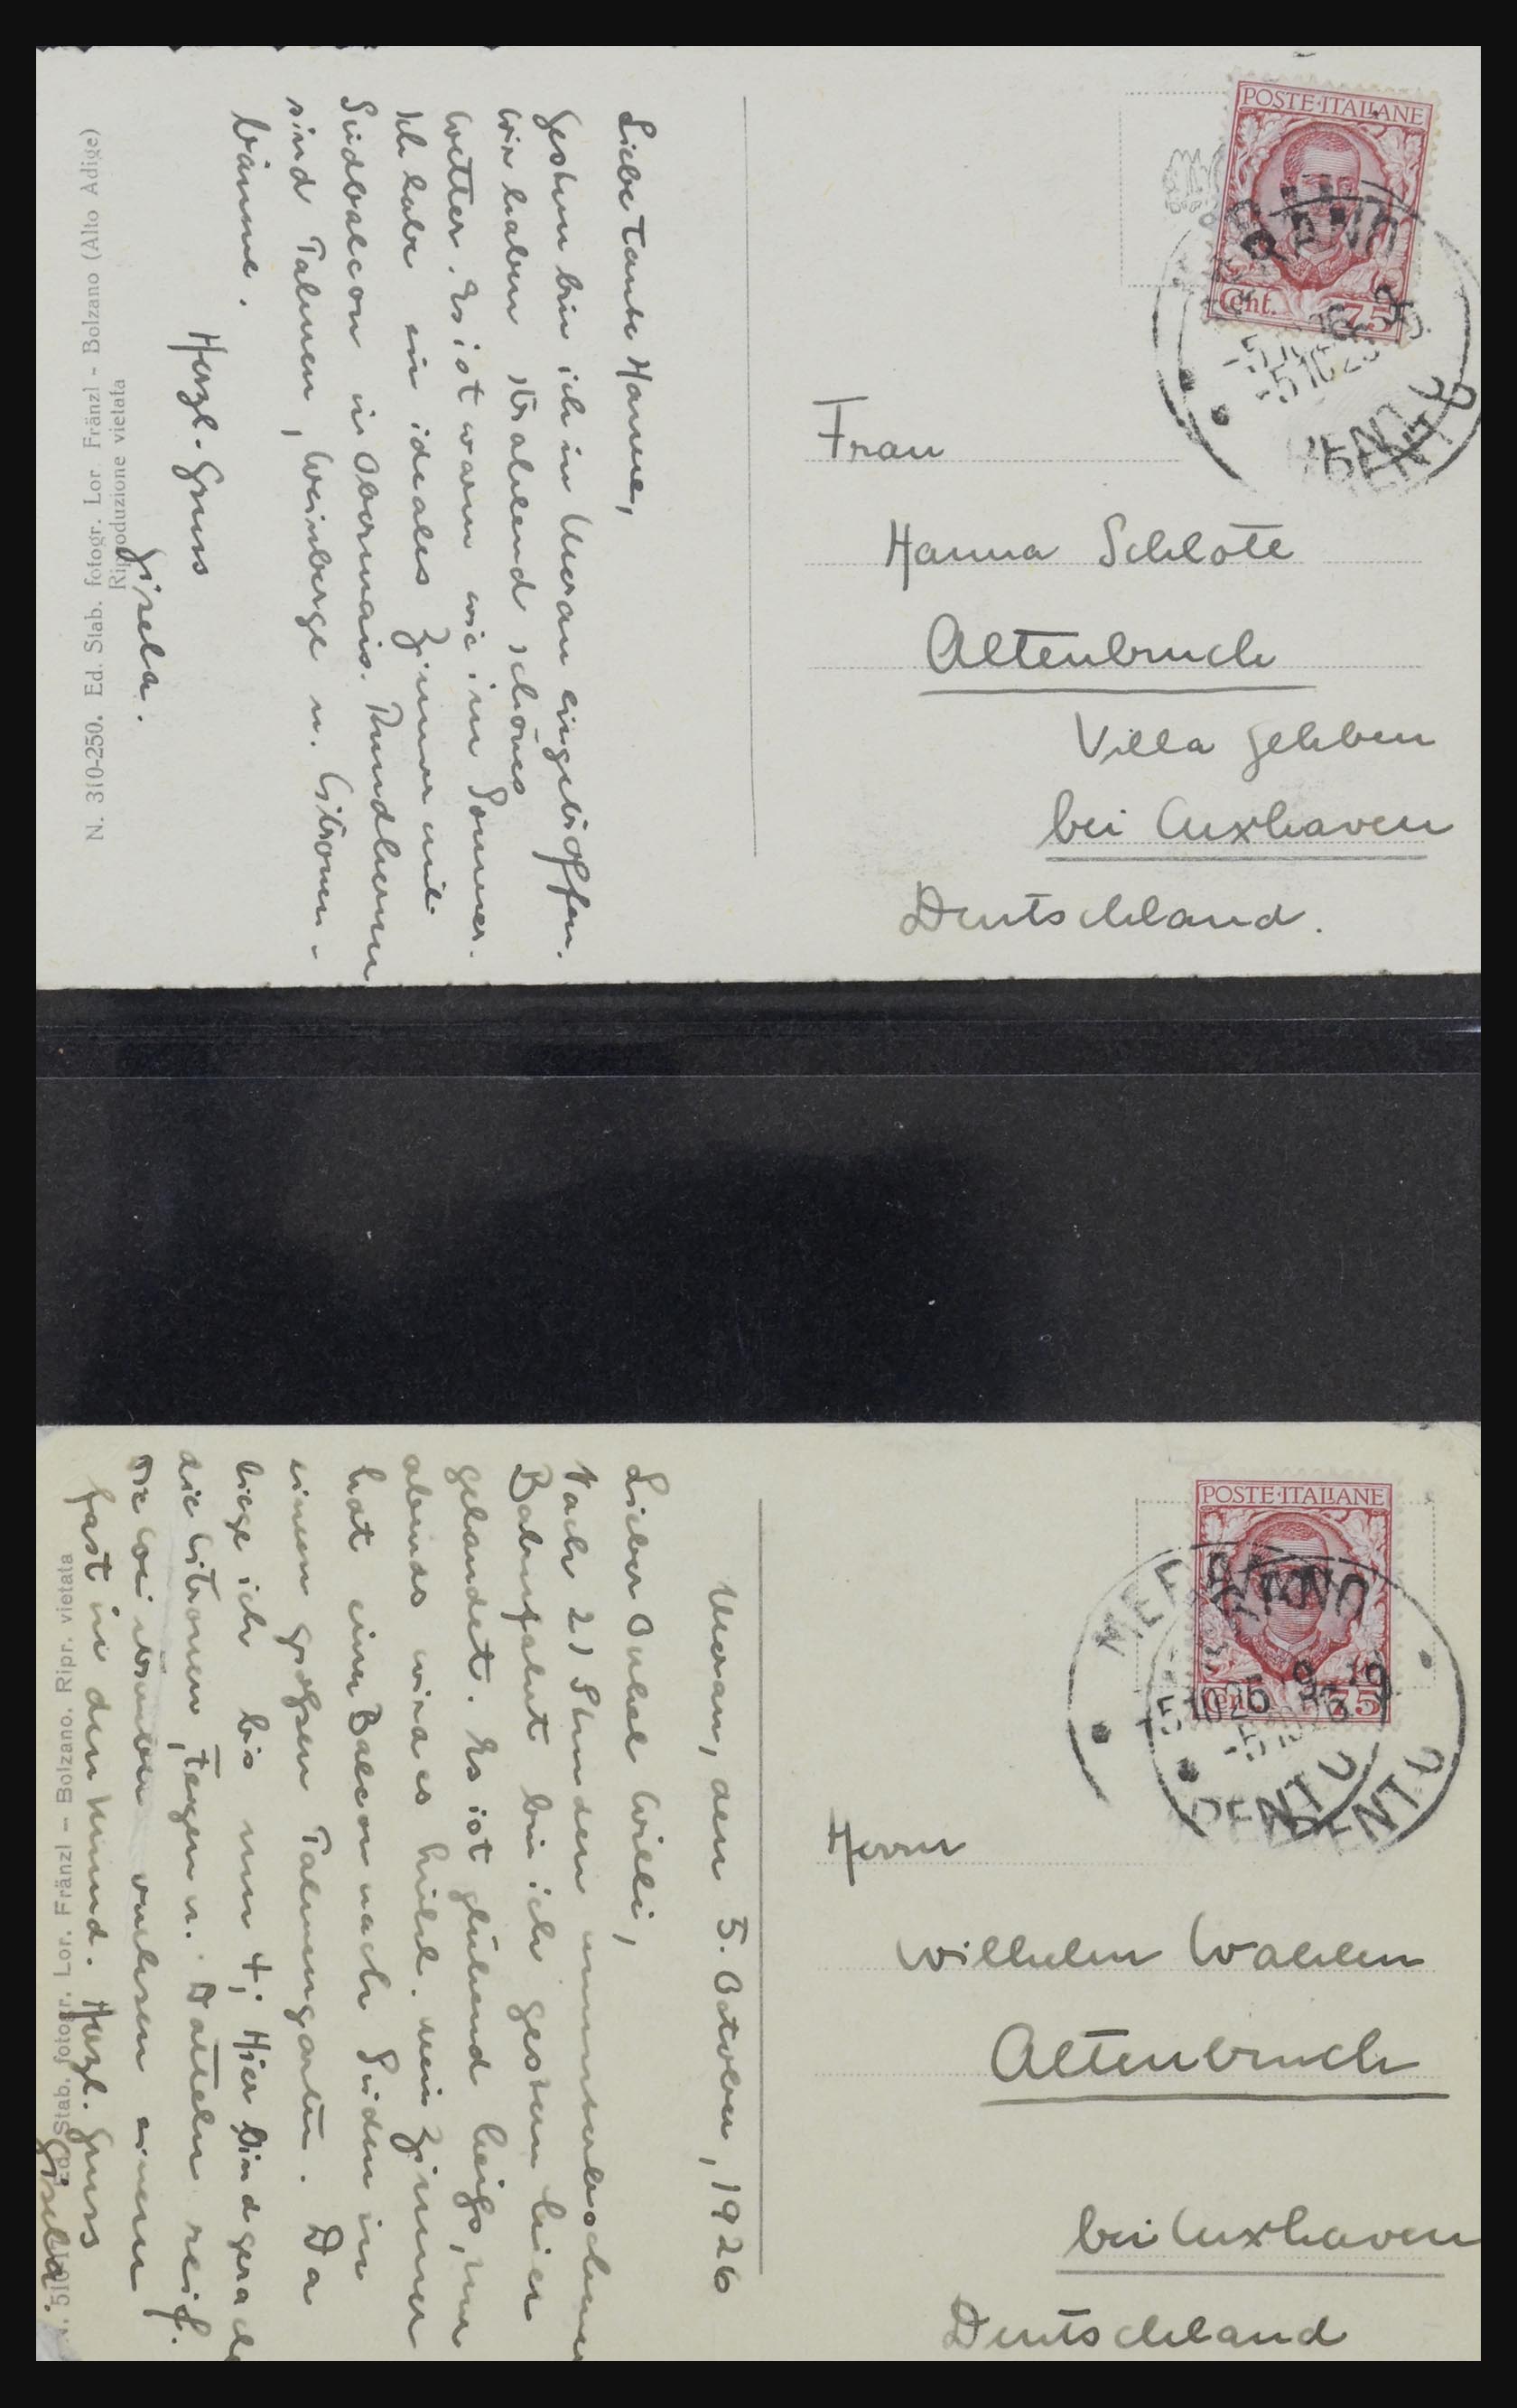 Liebe Tante Hanne,
Gestern bin ich in Meran eingetroffen.
Wir haben strahlend schönes
Wetter. Es ist warm wie im Sommer.
Ich habe ein ideales Zimmer mit
Südbalcon in Obermais. Rundherum
sind Palmen, Weinberge u. Citronen-
bäume.
Herzl. Gruss
Gisela.
N. 310-250. Ed. Stab. fotogr. Lor. Fränzl - Bolzano (Alto Adige)
Riproduzione vietata
POSTE·ITALIANE
Cent. 75
Frau
Hanna Schlote
Altenbruch
Villa Gehben
bei Cuxhaven
Deutschland.
Meran, den 5. October, 1926
Lieber Onkel Willi,
Nach 21 Stunden ununterbrochener
Bahnfahrt bin ich gestern hier
gelandet. Es ist glühend heiss, nur
abends wird es kühl. Mein Zimmer
hat einen Balcon nach Süden in
einem grossen Palmengarten. Da
liege ich bis um 4; Hier sind gerade
die Citronen, Feigen u. Datteln reif.
Die Weintrauben wachsen einem
fast in den Mund. Herzl. Gruss
Gisela.
Ed. Stab. fotogr. Lor. Fränzl - Bolzano. Ripr. vietata
POSTE·ITALIANE
Cent. 75
MERANO
9-10
-5 10 26
Herrn
Wilhelm Wahlen
Altenbruch
bei Cuxhaven
Deutschland